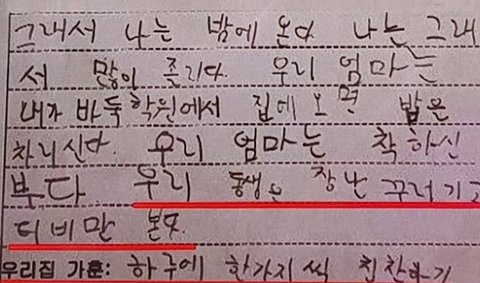 그래서 나는 밤에 온다. 나는 그래
서 많이 존리다. 우리 엄마는
내가 바둑학원에서 집에 오면 밥은
차리신다. 우리 엄마는 착하신
부다 우리 동생은 장난꾸러기고
티비만 본다.
우리집 가훈: 하루에 한가지씩 친찬하기